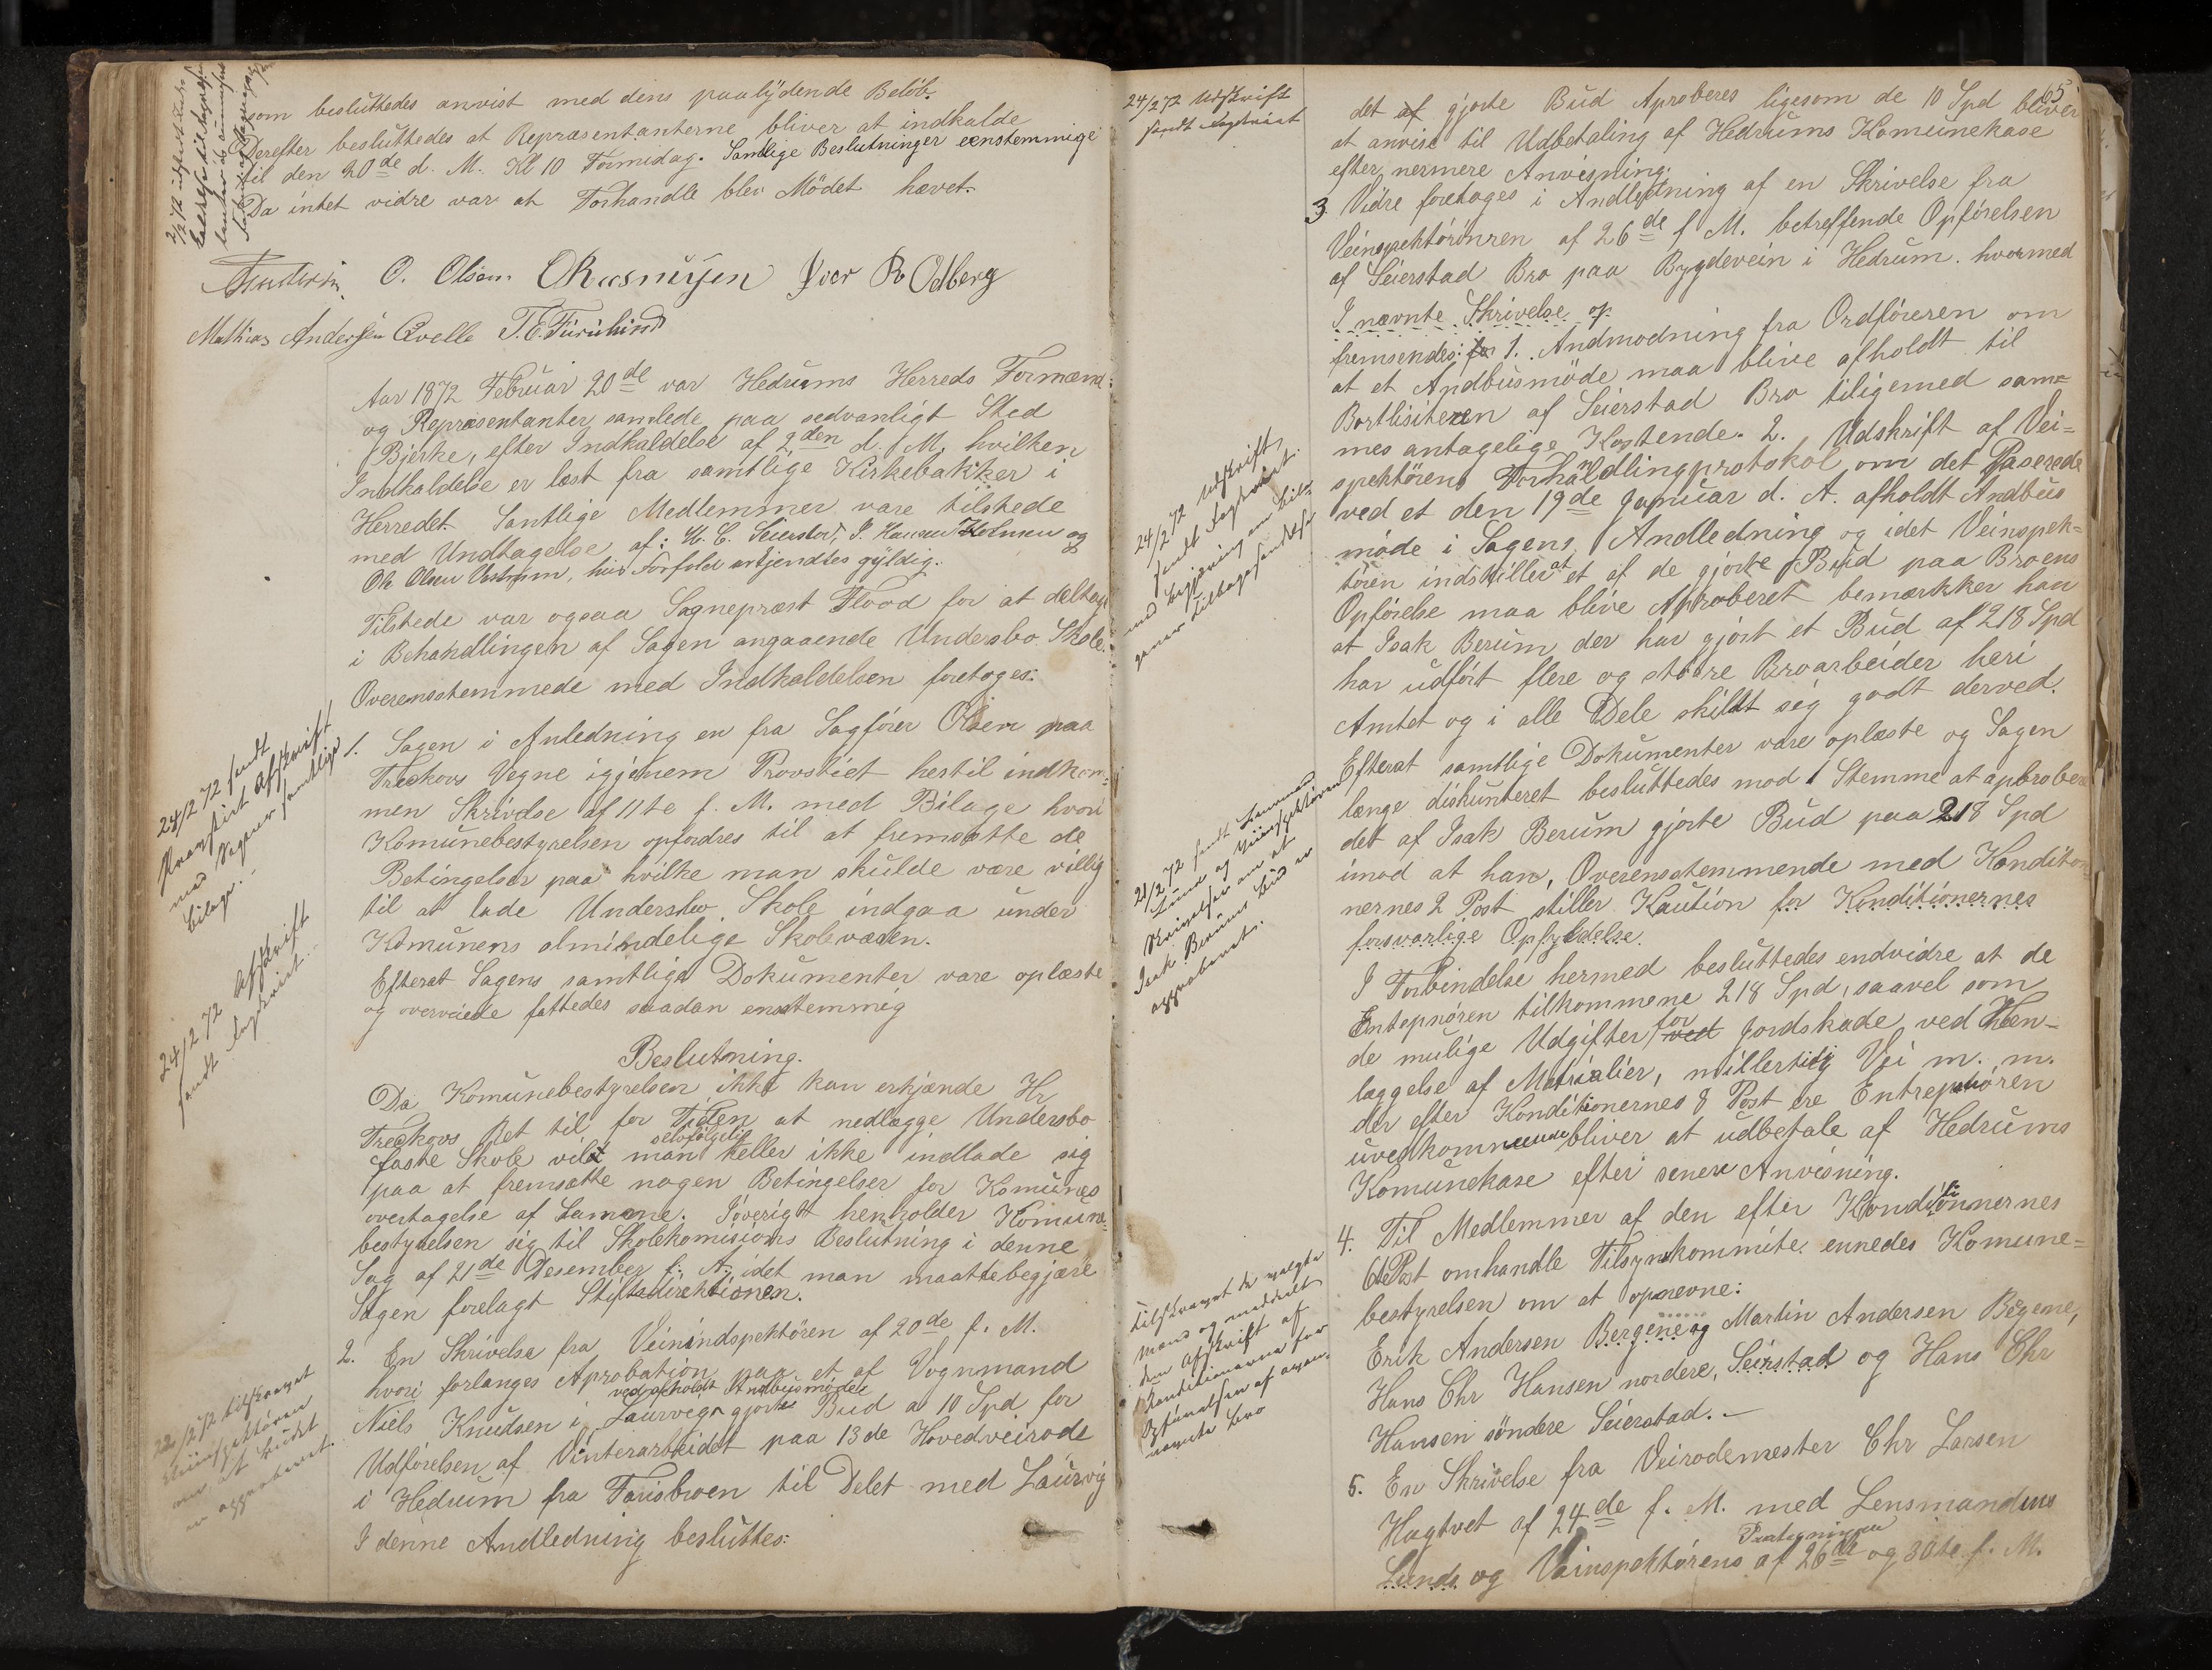 som besluttedes anvist med dens paalydende Belöb.
Derefter besluttedes at Repræsentanterne bliver at indkalde
til den 20de d. M. Kl 10 Formidag. Samtlige Beslutninger eenstemmige
Da intet vidre var at Forhandle blev Mödet hævet.
O. Olsen Iver Odberg
Mathias Andersen Qvelle
Aar 1872 Februar 20de var Hedrums Herreds Formænd
og Repræsentanter samlede paa sedvanligt Sted
Bjerke, efter Indkaldelse af 2den d. M. hvilken
Indkaldelse er læst fra samtlige Kirkebakker i
Herredet. Samtlige Medlemmer vare tilstede
med Undtagelse af: H. C. Seierstad, J. Hansen Holmen og
Ole Olsen, hvis Forfald erkjendtes gyldig.
Tilstede var ogsaa Sognepræst Flood for at deltage
i Behandlingen af Sagen angaaende Undersbo Skole.
Overensstemmede med Indkaldelsen foretoges:
24/2 72 sendt
Afskrift
med
bilage.
1. Sagen i Anledning en fra Sagförer Olsen paa
Treskovs Vegne igjenem Provstiet hertil indkom-
men Skrivelse af 11te f. M. med Bilage hvori
Komunebestyrelsen opfordres til at fremsætte de
Betingelser paa hvilke man skulde være villig
til at lade Undersbo Skole indgaa under
Komunens almindelige Skolevæsen.
Efterat Sagens samtlige Dokumenter vare oplæste
og overveiede fattedes saadan enstemmig
24/2 72 Afskrift
sendt
Beslutning.
Da Komunebestyrelsen ikke kan erkjænde Hr
Treskovs Ret til for Tiden at nedlægge Undersbo
faste Skole vil man selvfölgelig heller ikke indlade sig
paa at fremsætte nogen Betingelser for Komunes
overtagelse af Samme. Iöverigt henholder Komune-
bestyrelsen sig til Skolekomisions Beslutning i denne
Sag af 21de Desember f. A. idet man maatte begjære
Sagen forelagt Stiftsdirektionen.
22/2 72 tilskrevet
Veiinspektören
om at budet
er approberet.
2. En Skrivelse fra Veiinspektören af 20de f. M.
hvori forlanges Aprobation paa et af Vognmand
Niels Knudsen i Laurvig ved afholdt Andbusmöde gjorte Bud a 10 Spd for
Udförelsen af Vinterarbeidet paa 13de Hovedveirode
i Hedrum fra Farisbroen til Delet med Laurvig
I denne Andledning besluttes:
65
24/2 72 Udskrift
sendt
det af gjorte Bud Aproberes ligesom de 10 Spd bliver
at anvise til Udbetaling af Hedrums Komunekase
efter nermere Anvisning.
3. Vidre foretoges i Andledning af en Skrivelse fra
Veinspektörönren af 26de f M. betreffende Opförelsen
af Seierstad Bro paa Bygdevein i Hedrum. hvormed
I nævnte Skrivelse og
fremsendes: for 1. Andmodning fra Ordföreren om
at et Andbusmöde maa blive afholdt til
Bortlisiteren af Seierstad Bro tiligemed sam-
mes antagelige Kostende. 2. Udskrift af Vei-
spektörens Forhandlingprotokol om det Paserede
ved et den 19de Januar d. A. afholdt Andbus
möde i Sagens Andledning og idet Veinspek-
tören indstiller at et af de gjorte Bud paa Broens
Opförelse maa blive Aproberet bemærkker han
at Isak Berum der har gjort et Bud af 218 Spd
har udfört flere og större Broarbeider heri
Amtet og i alle Dele skildt sig godt derved.
24/2 72 Udskrift
sendt
med begjæring om
21/2 72 sendt Lensmand
Lund og Veiinspektören
Skrivelse om at
Isak Berums bud er
approberet.
Efterat samtlige Dokumenter vare oplæste og Sagen
længe diskunteret besluttedes mod 1 Stemme at aprobere
det af Isak Berum gjorte Bud paa 218 Spd
imod at han, Overensstemmende med Kondito-
nernes 2 Post stiller Kaution for Konditionernes
forsvarlige Opfyldelse.
I Forbindelse hermed besluttedes endvidre at de
Entepnören tilkommene 218 Spd, saavel som
de mulige Udgifter ved for Jordskade ved Hen-
læggelse af Matrialier, millertidig Vei m. m.
der efter Konditionernes 8 Post ere Entrepnören
uvedkommende bliver at udbetale af Hedrums
Komunekase efter senere Anvisning.
tilskrevet de valgte
Mænd og meddelt
dem Afskrift af
Konditionerne for
Opförelsen af
nævnte bro
4. Til Medlemmer af den efter Konditionnernes
6te Post omhandle Tilsynskommite ennedes Komune-
bestyrelsen om at opnevne:
Erik Andersen Bergene og Martin Andersen Bögene,
Hans Chr Hansen nordere, Seierstad og Hans Chr
Hansen söndere Seierstad. –
5. En Skrivelse fra Veirodemester Chr Larsen
Hagtvet af 24de f. M. med Lensmandens
Lunds og Veinspektörens Paategninger af 26de og 30te f. M.